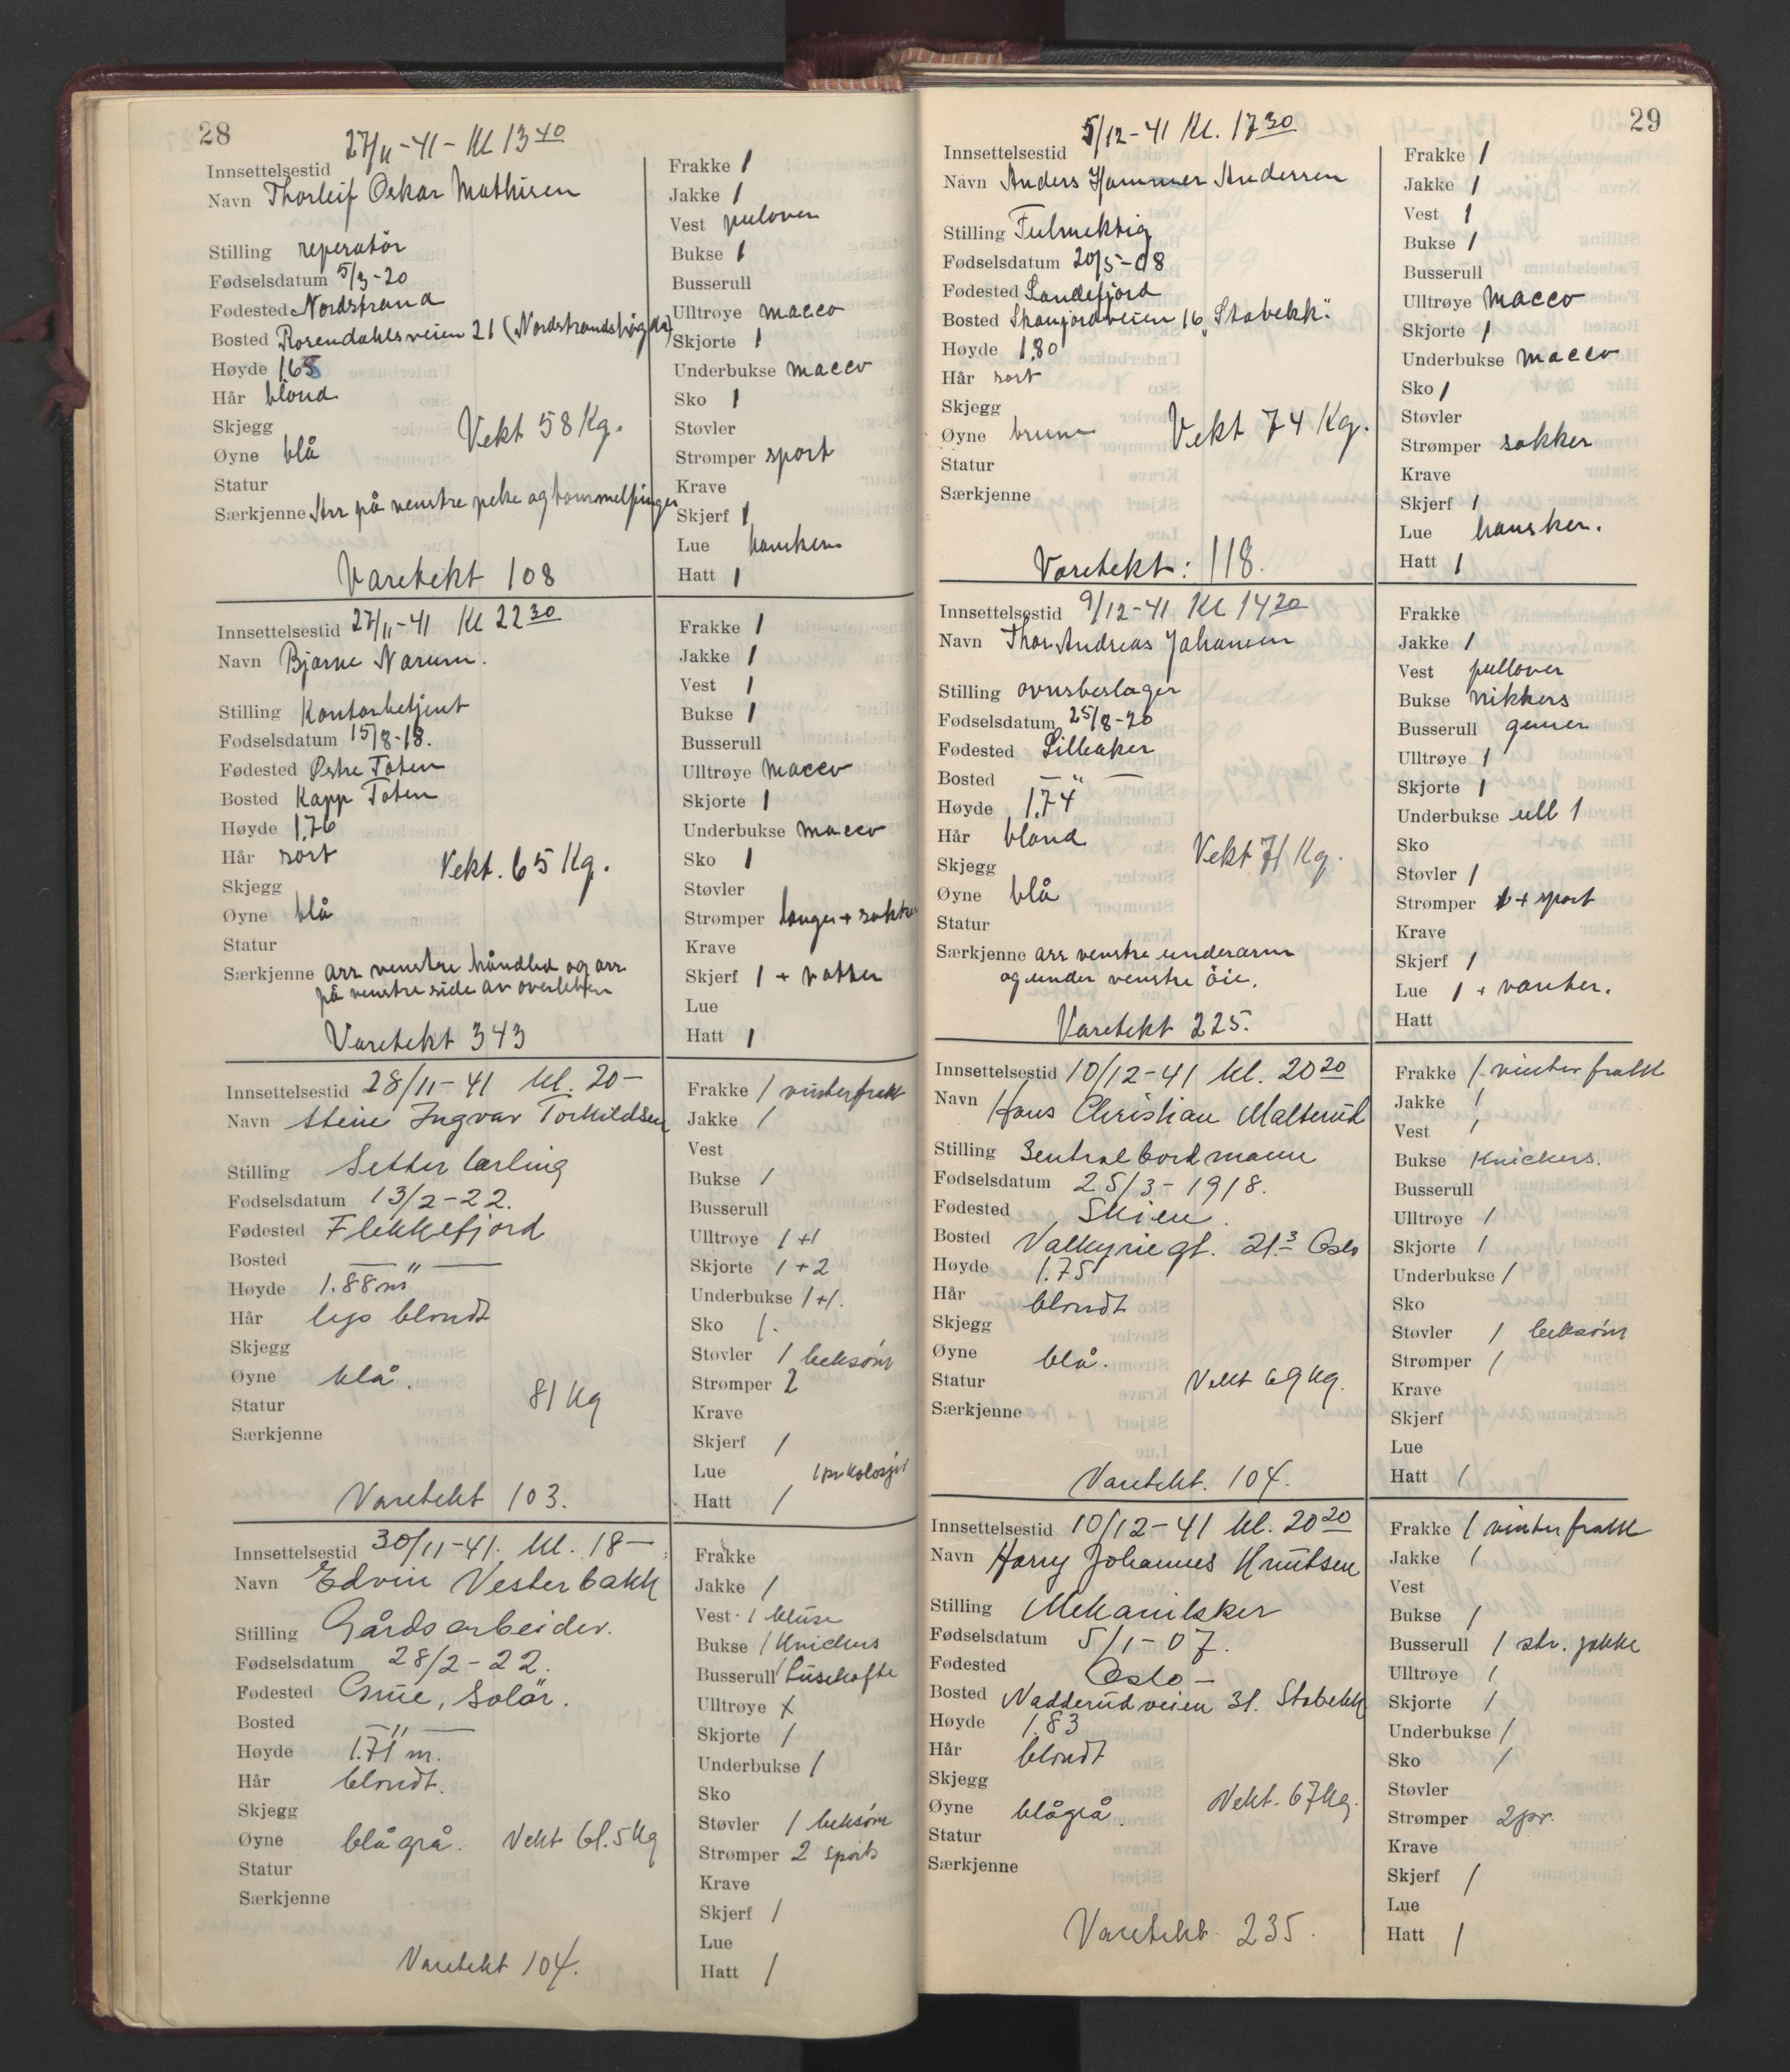 28
Innsettelsestid 27/11-41 - Kl 13 40
Navn Thorleif Oskar Mathisen
Stilling reperatör
Fødselsdatum 5/3-20
Fødested Nordstrand
Bosted Rosendahlsveien 21 (Nordstrandshøgda)
Høyde 165
Hår blond
Skjegg
Øyne blå Vekt 58 Kg.
Statur
Særkjenne Arr på venstre peke og tommelfinger
Varetekt 108
Frakke 1
Jakke 1
Vest pulover
Bukse 1
Busserull
Ulltrøye macco
Skjorte 1
Underbukse macco
Sko 1
Støvler
Strømper sport
Krave
Skjerf 1
Lue hansker
Hatt 1
Innsettelsestid 27/11-41 Kl 22 30
Navn Bjarne Narum.
Stilling Kontorbetjent
Fødselsdatum 15/8-18.
Fødested Østre Toten
Bosted Kapp Toten
Høyde 1.76
Hår sort
Vekt. 65 Kg.
Skjegg
Øyne blå
Statur
Særkjenne arr venstre håndled og arr
på venstre side av overleben
Varetekt 343
Frakke 1
Jakke 1
Vest 1
Bukse 1
Busserull
Ulltrøye macco
Skjorte 1
Underbukse macco
Sko 1
Støvler
Strømper lange + sokker
Krave
Skjerf 1 + votter
Lue
Hatt 1
Innsettelsestid 28/11-41 kl. 20 -
Navn Steine Ingvar Torkildsen
Stilling Setter lærling
Fødselsdatum 13/2-22.
Fødested Flekkefjord
Bosted — " —
Høyde 1.88 m
Hår lys blondt
Skjegg
Øyne blå.
81 kg
Statur
Særkjenne
Varetekt 103.
Frakke 1 vinterfrakk
Jakke 1
Vest
Bukse 1
Busserull
Ulltrøye 1 + 1
Skjorte 1 + 2
Underbukse 1 + 1.
Sko 1.
Støvler 1 beksøm
Strømper 2
Krave
Skjerf 1
Lue 1 pr kalosjer
Hatt 1
Innsettelsestid 30/11-41. kl. 18 -
Navn Edvin Vesterbakk
Stilling Gårdsarbeider.
Fødselsdatum 28/2-22.
Fødested Grue, Solör.
Bosted — " —
Høyde 1.71 m.
Hår blondt.
Skjegg
Øyne blågrå. Vekt 61.5 kg
Statur
Særkjenne
Varetekt 104.
Frakke
Jakke 1
Vest 1 bluse
Bukse 1 Knickers
Busserull lusekofte
Ulltrøye
Skjorte 1
Underbukse 1
Sko
Støvler 1 beksøm
Strømper 2 sports
Krave
Skjerf 1
Lue
Hatt 1
29
Innsettelsestid 5/12-41 Kl. 17 30
Navn Anders Hammer Andersen
Stilling Fulmektig
Fødselsdatum 20/5-08
Fødested Sandefjord
Bosted 16 "Stabekk"
Høyde 1.80
Hår sort
Skjegg
Øyne brune Vekt 74 Kg.
Statur
Særkjenne
Varetekt: 118.
Frakke 1
Jakke 1
Vest 1
Bukse 1
Busserull
Ulltrøye macco
Skjorte 1
Underbukse macco
Sko 1
Støvler
Strømper sokker
Krave
Skjerf 1
Lue hansker.
Hatt 1
Innsettelsestid 9/12-41 Kl 14 20
Navn Thor Andreas Johansen
Stilling ovnsbeslager
Fødselsdatum 25/8-20
Fødested Lilleaker
Bosted — " —
Høyde 1.74
Hår blond
Vekt 71 Kg.
Skjegg
Øyne blå
Statur
Særkjenne arr venstre underarm
og under venstre öie.
Varetekt 225.
Frakke
Jakke 1
Vest pullover
Bukse nikkers
Busserull genser
Ulltrøye 1
Skjorte 1
Underbukse ull 1
Sko
Støvler 1
Strømper 1 + sport
Krave
Skjerf 1
Lue 1 + vanter.
Hatt
Innsettelsestid 10/12-41 kl. 20 20
Navn Hans Christian Malterud
Stilling Sentralbordmann
Fødselsdatum 25/3-1918.
Fødested Skien.
Bosted Valkyriegt. 21.3 Oslo
Høyde 1.75
Hår blondt
Skjegg
Øyne blå.
Statur Vekt 69 kg.
Særkjenne
Varetekt. 104.
Frakke 1 vinterfrakk
Jakke 1
Vest 1
Bukse Knickers.
Busserull
Ulltrøye 1
Skjorte 1
Underbukse 1
Sko
Støvler 1 beksøm
Strømper 1
Krave
Skjerf
Lue
Hatt 1
Innsettelsestid 10/12-41 kl. 20 20
Navn Harry Johannes Knutsen
Stilling Mekaniker
Fødselsdatum 5/1-07.
Fødested Oslo -
Bosted Nadderudveien 31. Stabekk
Høyde 1.83
Hår blondt
Skjegg
Øyne blågrå. Vekt. 67 kg.
Statur
Særkjenne
Varetekt 235.
Frakke 1 vinterfrakk
Jakke 1
Vest
Bukse 1
Busserull 1 str. jakke
Ulltrøye 1
Skjorte 1
Underbukse 1
Sko 1
Støvler
Strømper 2 pr.
Krave
Skjerf 1
Lue
Hatt 1